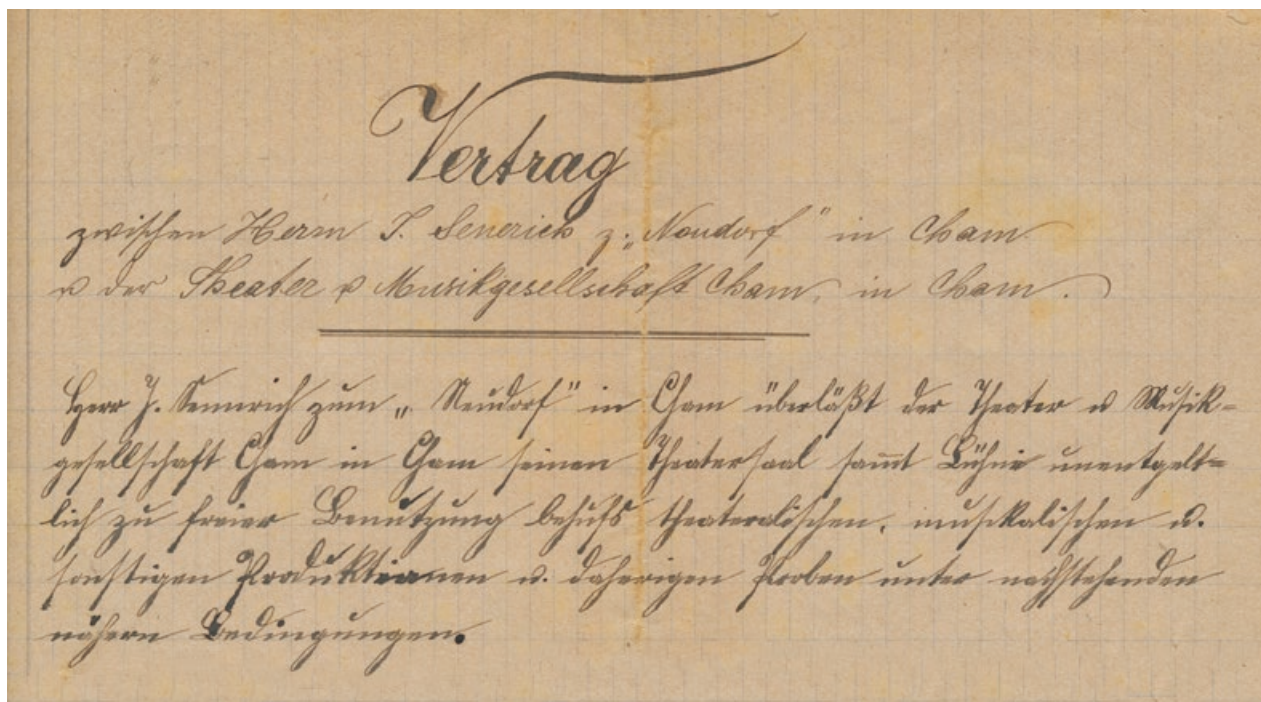 Vertrag
zwischen Herrn J. Sennrich z. „Neudorf" in Cham
u der Theater u Musikgesellschaft Cham, in Cham.
Herr J. Sennrich zum „Neudorf" in Cham überläßt der Theater u Musik=
gesellschaft Cham in Cham seinen Theatersaal sam̅t Bühne unentgelt=
lich zu freier Benutzung behufs theateralischen, musikalischen u.
sonstigen Produktionen u. daherigen Proben unter nachstehenden
nähern Bedingungen.